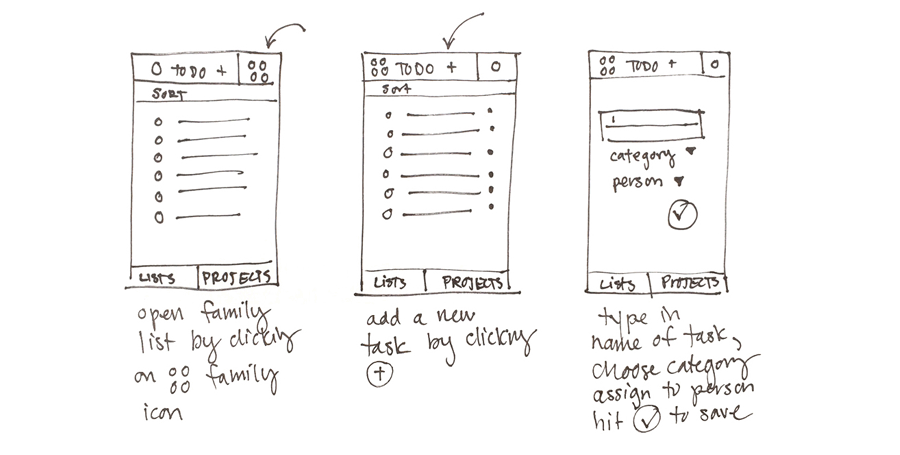 TODO +
SORT
LISTS PROJECTS
open family
list by clicking
on family
icon
TODO +
SORT
LISTS PROJECTS
add a new
task by clicking
+
TODO +
category ▼
person ▼
✓
LISTS PROJECTS
type in
name of task,
choose category
assign to person
hit ✓ to save